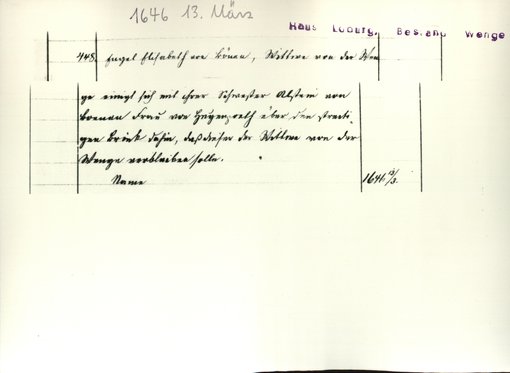 1646 13. März
Haus Loburg, Bestand Wenge
448. Engel Elisabeth von Bönen, Wittwe von der Wen
ge einigt sich mit ihrer Schwester von
Frau von über den streiti
gen Brink dahin, daß dieser der Wittwe von der
Wenge verbleiben solle.
Name 1646 13/3.